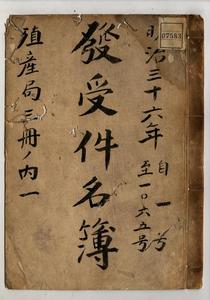 07583
明治三十六年
自一号
至一〇六五号
發受件名簿
殖産局三冊ノ内一